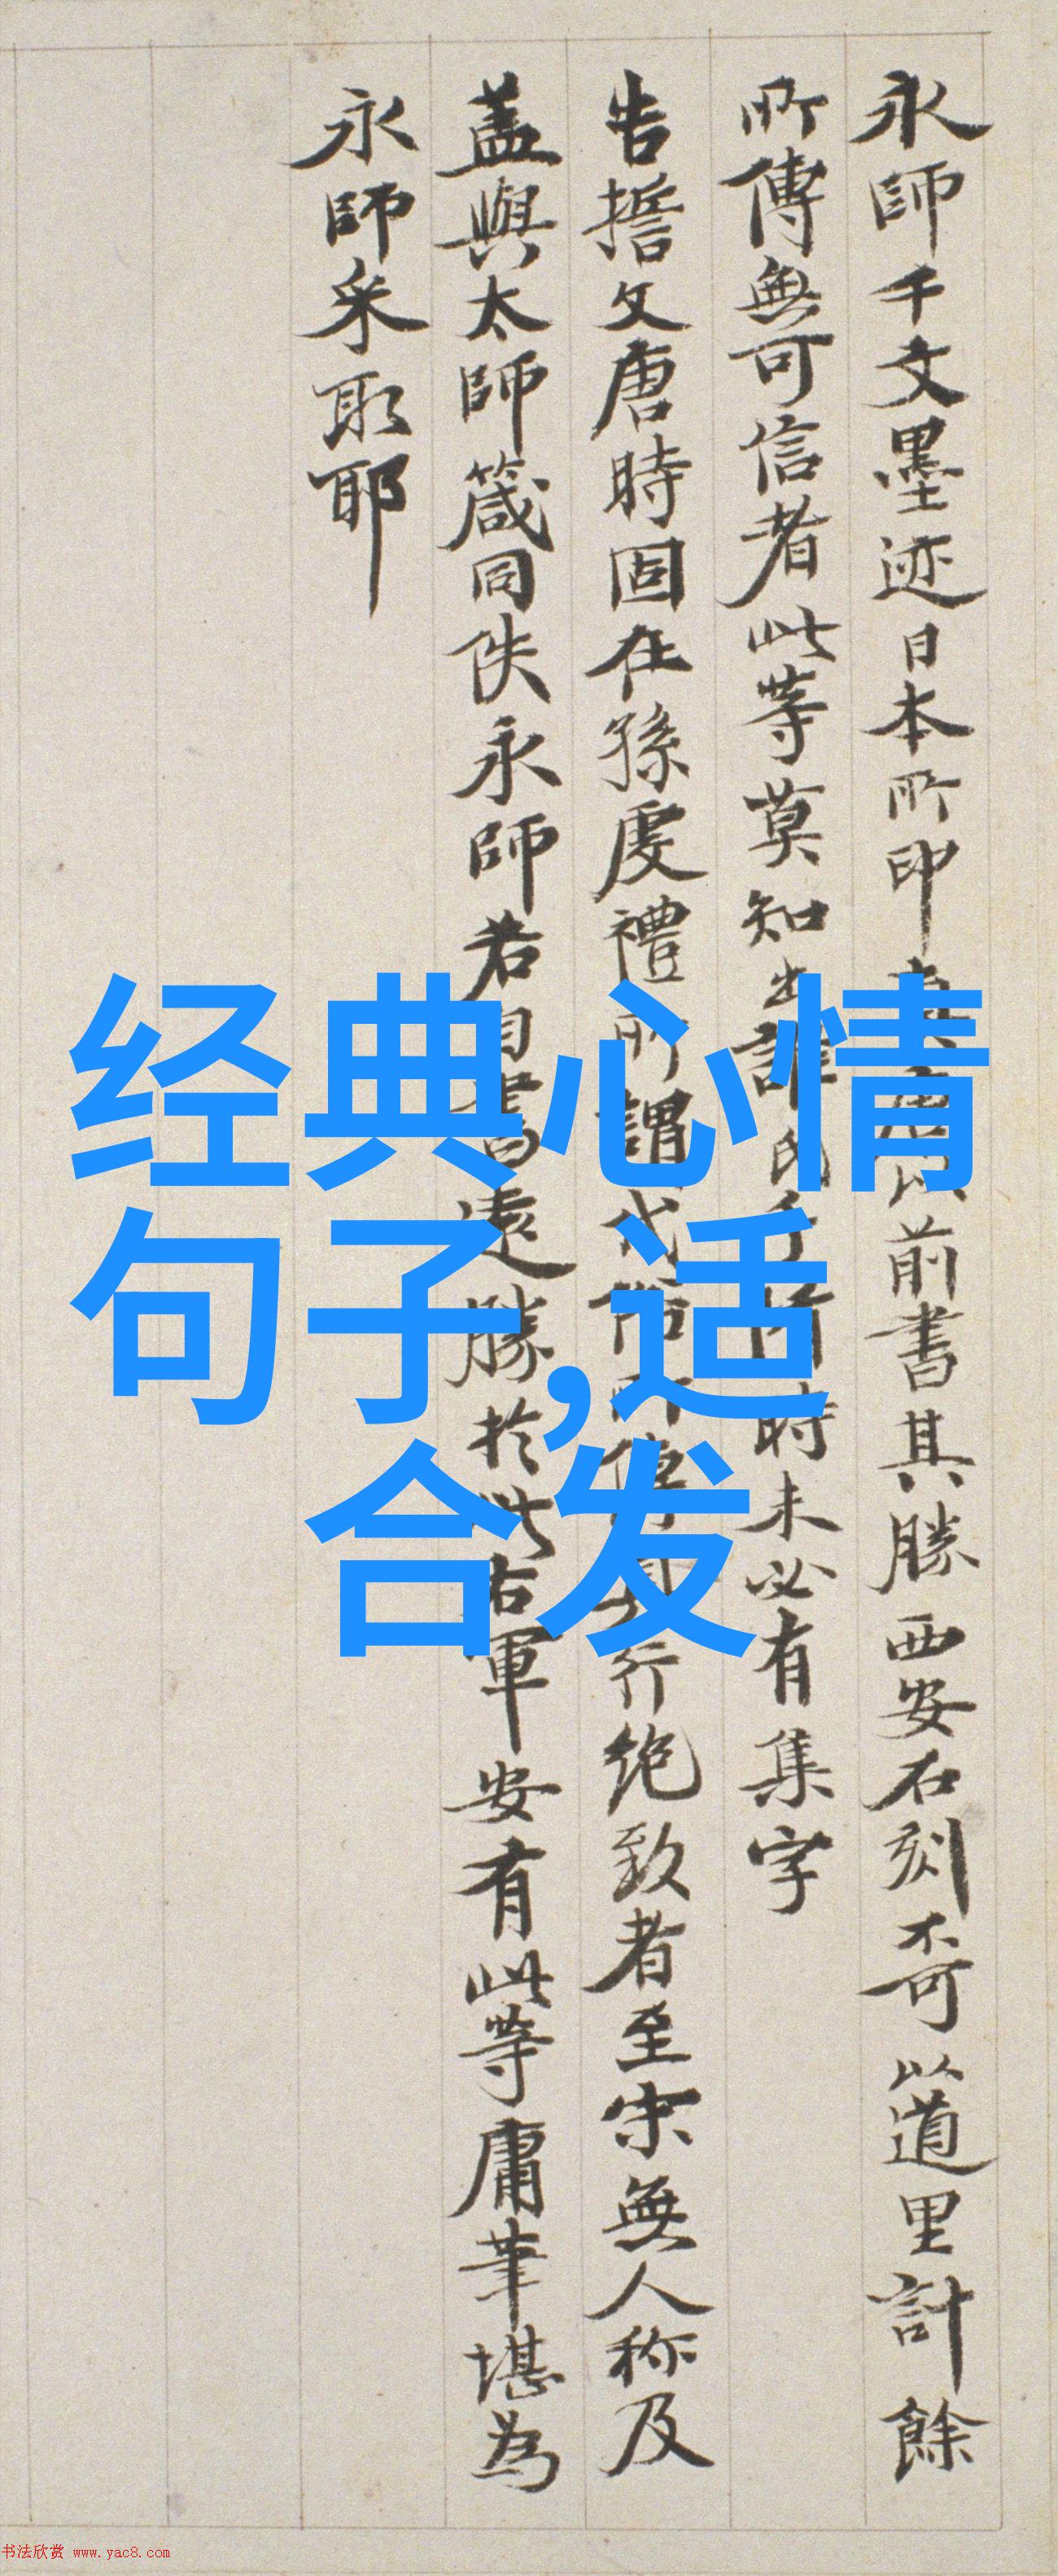 永師千文墨迹日本所印
以前書其勝西安石刻不可以道里計餘
所傳無可信者此等莫知出誰氏手
時未必有集字
告誓文唐時固在孫虔禮所謂代俗所傳
行絶致者至宋無人称及
蓋與太師箴同佚永師若自書遠勝於此右軍安有此等庸筆堪為
永師采取耶
经典心情
句子,适
合发
书法欣赏 www.yac8.com